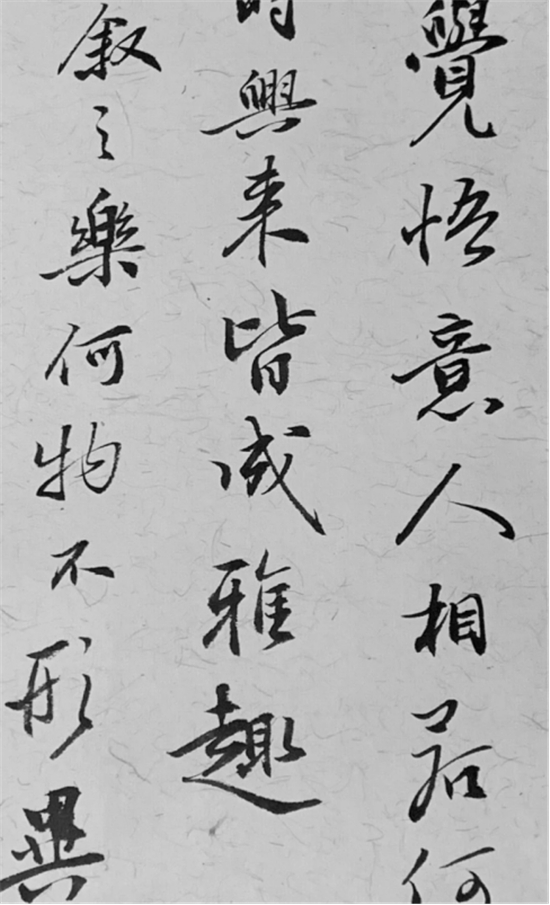 覺悟意人相若何
時興来皆成雅趣
叙之樂何物不形異